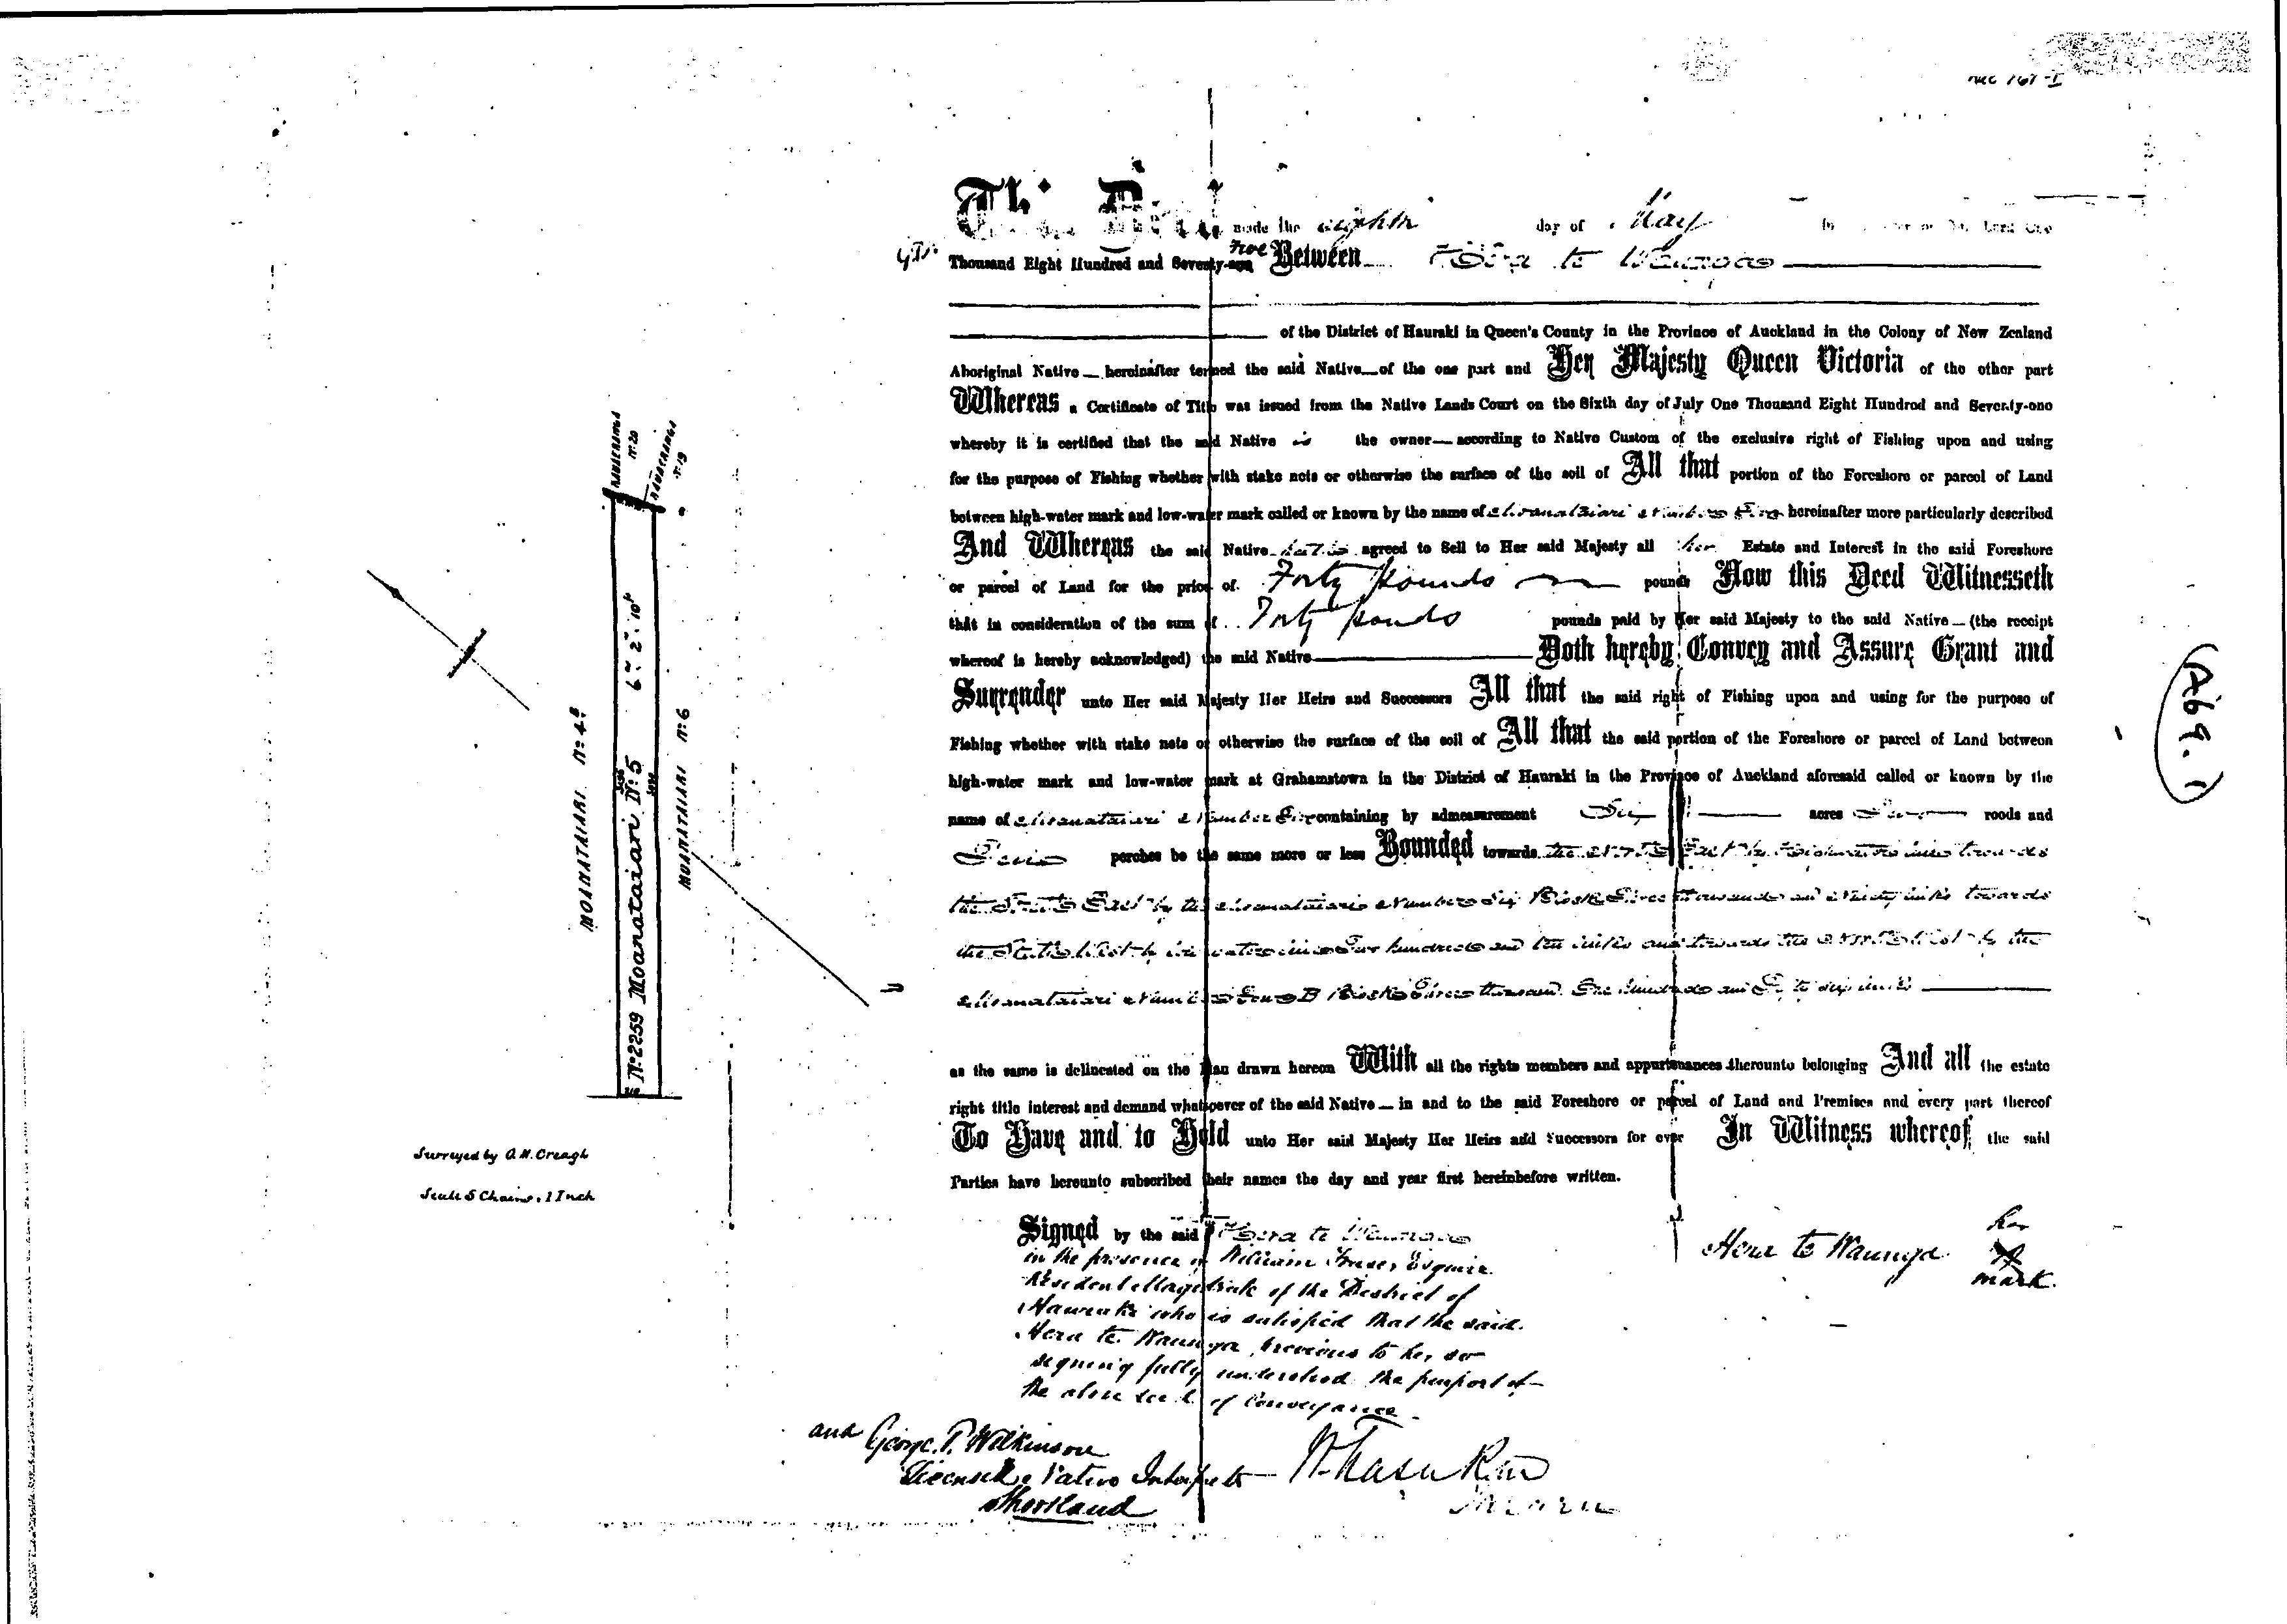 This Deed made the eighth day of May in Lord One
two
Thousand Eight Hundred and Seventy-one Between Hera te Waunga
of the District of Hauraki in Queen's County in the Province of Auckland in the Colony of New Zealand
Aboriginal Native — hereinafter termed the said Native — of the one part and Her Majesty Queen Victoria of the other part
Whereas a Certificate of Title was issued from the Native Lands Court on the Sixth day of July One Thousand Eight Hundred and Seventy-one
whereby it is certified that the said Native is the owner — according to Native Custom of the exclusive right of Fishing upon and using
for the purpose of Fishing whether with stake nets or otherwise the surface of the soil of All that portion of the Foreshore or parcel of Land
between high-water mark and low-water mark called or known by the name of Moanataiari Number Five hereinafter more particularly described
And Whereas the said Native hath agreed to Sell to Her said Majesty all her Estate and Interest in the said Foreshore
or parcel of Land for the price of Forty pounds pounds Now this Deed Witnesseth
that in consideration of the sum of Forty pounds pounds paid by Her said Majesty to the said Native — (the receipt
whereof is hereby acknowledged) the said Native Doth hereby Convey and Assure Grant and
Surrender unto Her said Majesty Her Heirs and Successors All that the said right of Fishing upon and using for the purpose of
Fishing whether with stake nets or otherwise the surface of the soil of All that the said portion of the Foreshore or parcel of Land between
high-water mark and low-water mark at Grahamstown in the District of Hauraki in the Province of Auckland aforesaid called or known by the
name of Moanataiari Number Five containing by admeasurement Six acres Two roods and
Ten perches be the same more or less Bounded towards the North East by Highwater line towards
the South East by the Moanataiari Number Six Block Three thousand and Ninety links towards
the South West by low water line Two hundred and ten links and towards the North West by the
Moanataiari Number Four B Block Three thousand One hundred and six links
as the same is delineated on the Plan drawn hereon With all the rights members and appurtenances thereunto belonging And all the estate
right title interest and demand whatsoever of the said Native — in and to the said Foreshore or parcel of Land and Premises and every part thereof
To Have and to Hold unto Her said Majesty Her Heirs and Successors for ever In Witness whereof the said
Parties have hereunto subscribed their names the day and year first hereinbefore written.
Signed by the said Hera te Waunga
in the presence of William Fraser Esquire
Resident Magistrate of the District of
Hauraki who is satisfied that the said
Hera te Waunga previous to her so
signing fully understood the purport of
the above deed of Conveyance
Hera te Waunga her X mark.
and George T. Wilkinson
Licensed Native Interpreter
Shortland
KAUAERANGA No. 20
KAUAERANGA No. 19
MOANATAIARI No. 4B
No. 2259 Moanataiari No. 5 6a 2r 10p
MOANATAIARI No. 6
Surveyed by A. H. Creagh
Scale 5 Chains : 1 Inch
(A69.1)